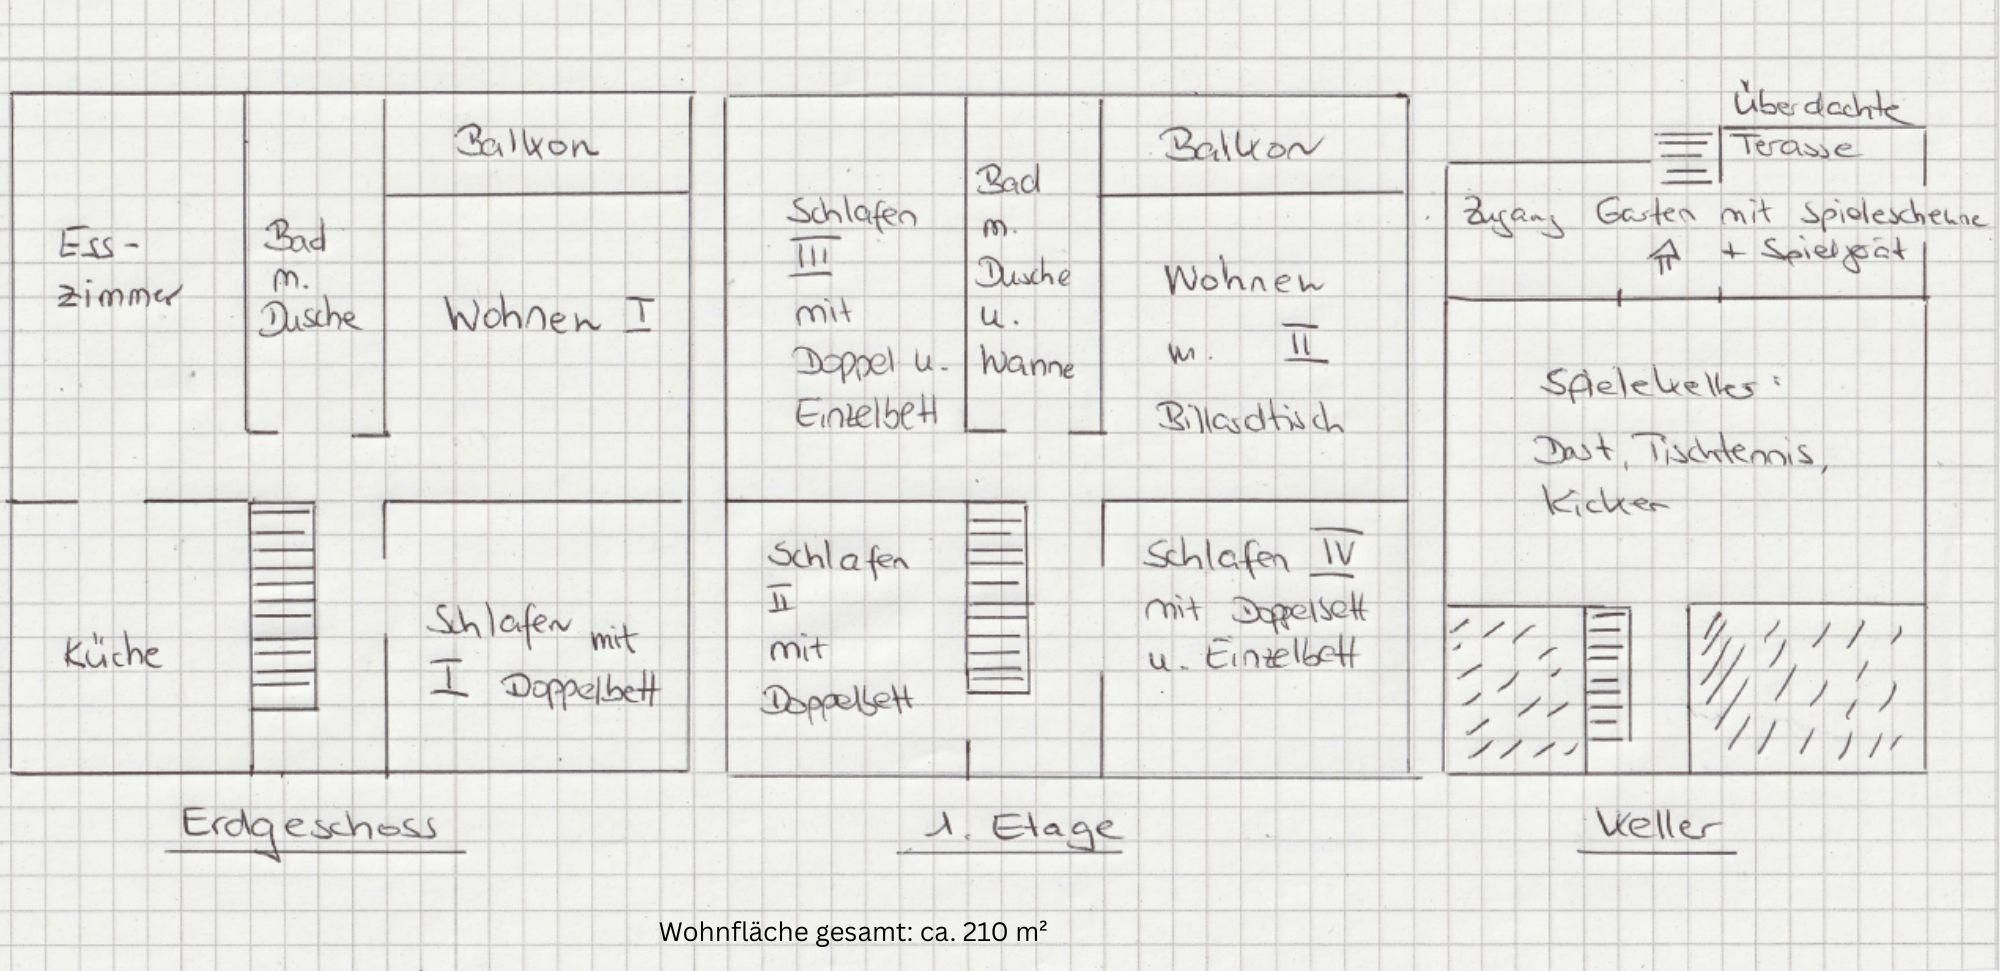 Ess-
zimmer
Bad
m.
Dusche
Balkon
Wohnen I
Küche
Schlafen mit
I Doppelbett
Erdgeschoss
Schlafen
III
mit
Doppel u.
Einzelbett
Bad
m.
Dusche
u.
Wanne
Balkon
Wohnen
m. II
Billardtisch
Schlafen
II
mit
Doppelbett
Schlafen IV
mit Doppelbett
u. Einzelbett
1. Etage
Überdachte
Terasse
Zugang Garten mit Spielescheune
+ Spielgerät
Spielekeller:
Dart, Tischtennis,
Kicker
Keller
Wohnfläche gesamt: ca. 210 m²